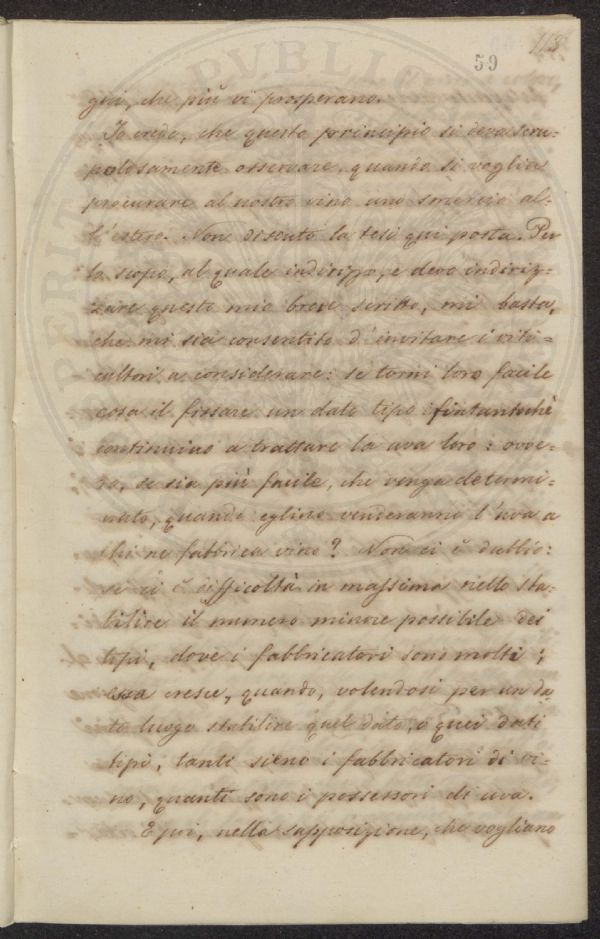 118
59
giù, che più vi prosperano.
Io credo, che questo principio si deva scru-
polosamente osservare, quando si voglia
procurare al nostro vino uno smercio al-
l'estero. Non discuto la tesi qui posta. Per
lo scopo, al quale indirizzo, e devo indiriz-
zare questo mio breve scritto, mi basta,
che mi sia consentito d'invitare i viti-
cultori a considerare: se torni loro facile
cosa il fissare un dato tipo fintantoché
continuino a trattare la uva loro: ovve-
ro, se sia più facile, che venga determi-
nato, quando eglino venderanno l'uva a
chi ne fabbrica vino? Non ci è dubbio:
se ci è difficoltà in massima nello sta-
bilire il numero minore possibile dei
tipi, dove i fabbricatori sono molti;
essa cresce, quando, volendosi per un da-
to luogo stabilire quel dato, o quei dati
tipi, tanti sieno i fabbricatori di vi-
no, quanti sono i possessori di uva.
E poi, nella supposizione, che vogliano